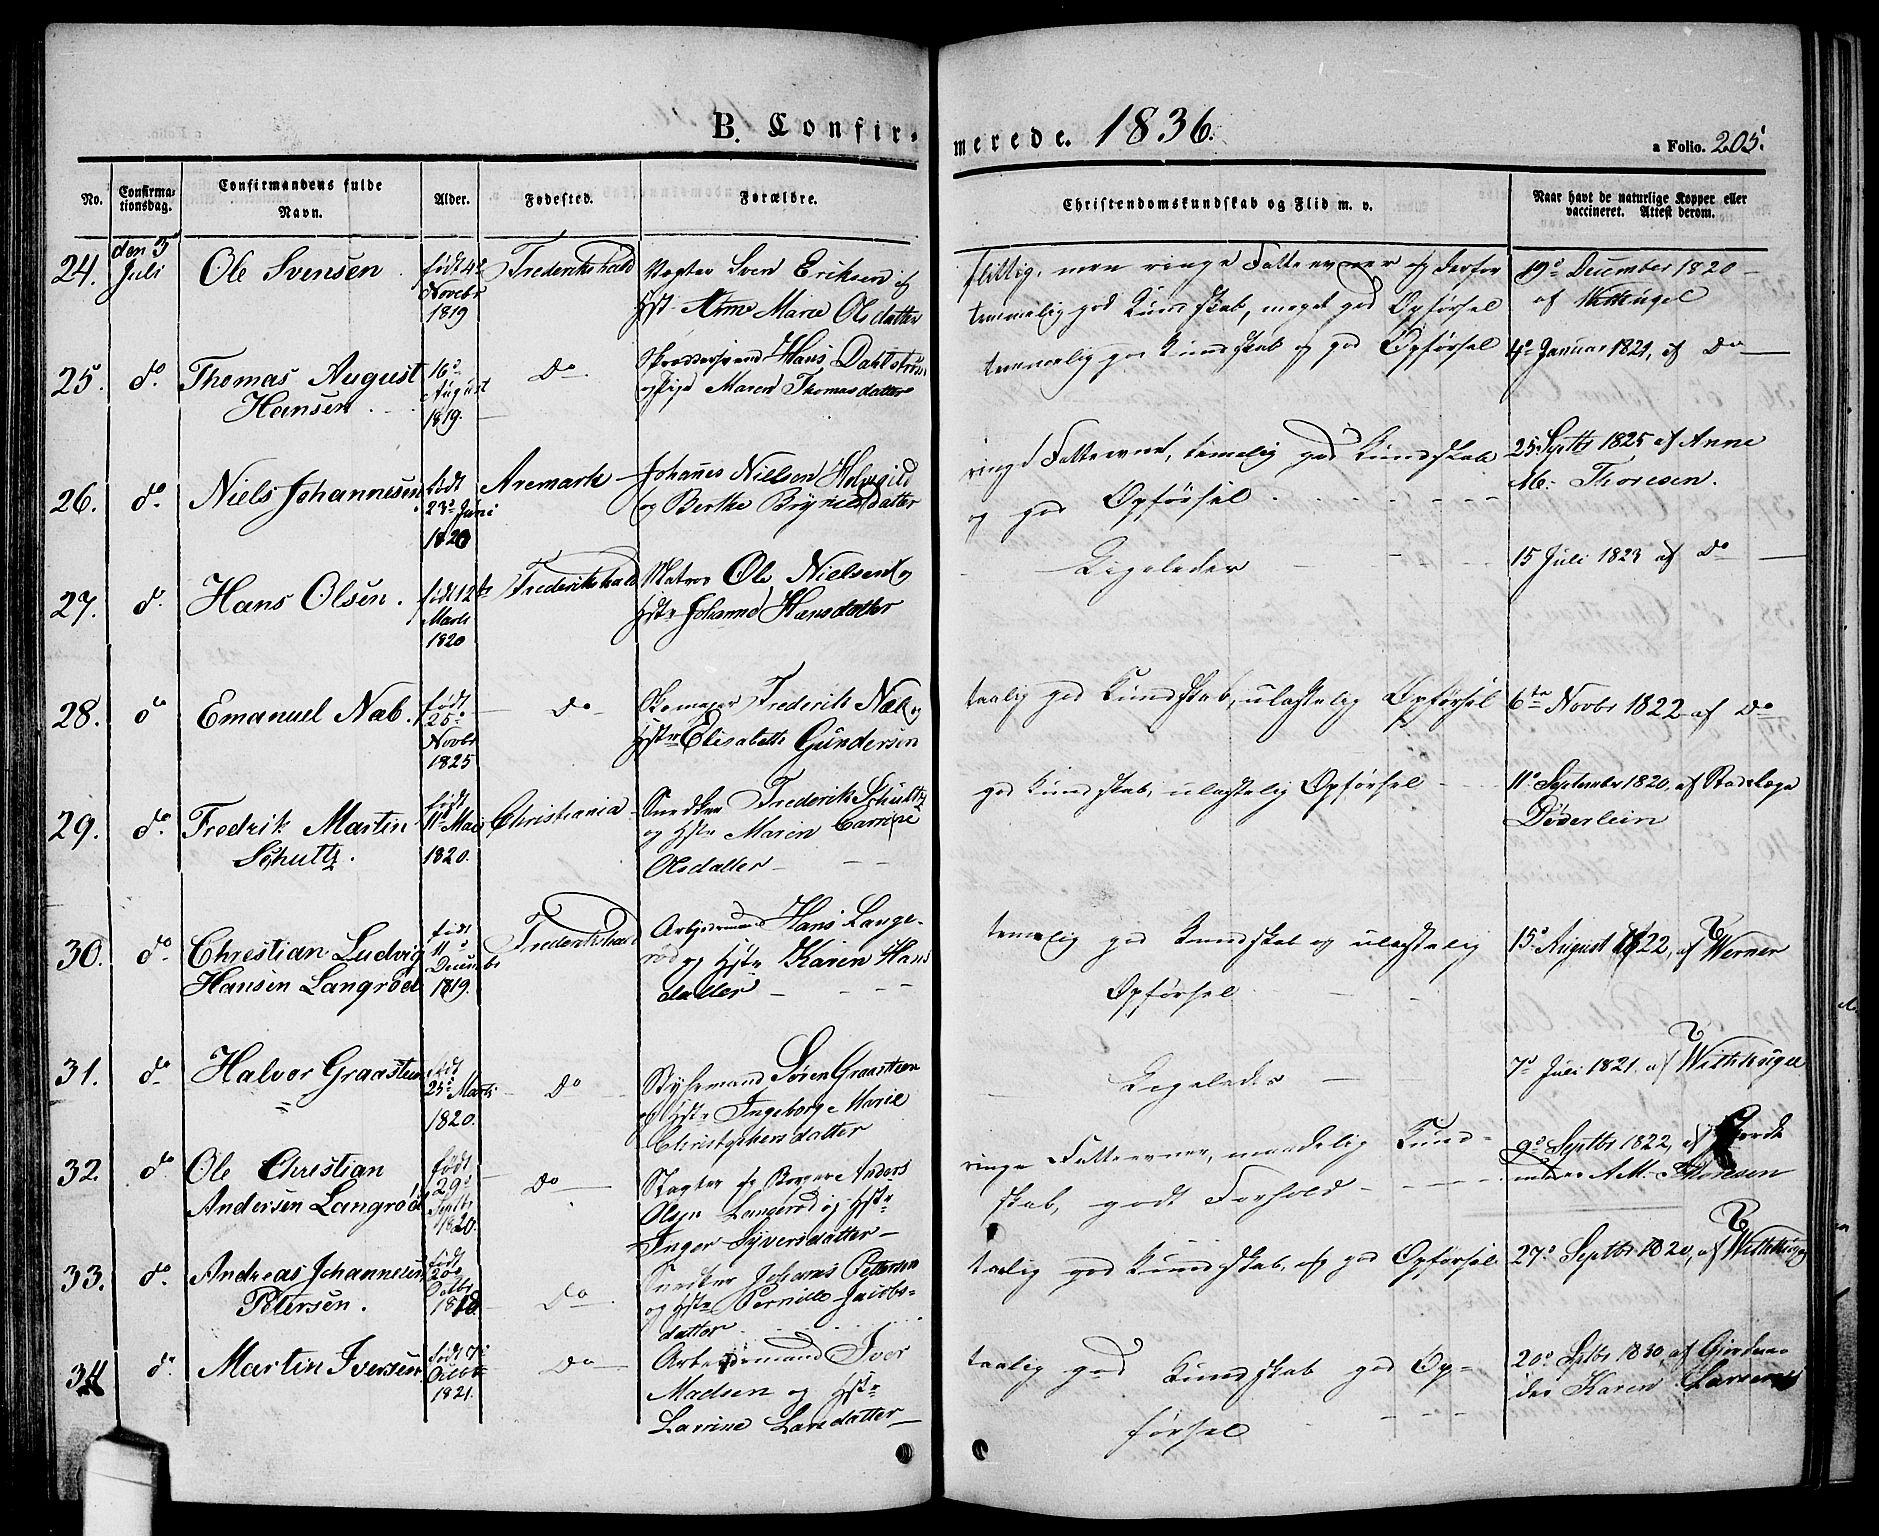 B. Confir-
merede. 1836.
a Folio. 205.
No.
Confirma-
tionsdag.
Confirmandens fulde
Navn.
Alder.
Fødested.
Forældre.
Christendomskundskab og Flid m. v.
Naar havt de naturlige Kopper eller
vaccineret. Attest derom.
24.
den 3
Juli
Ole Svensen
født 4de
Novebr
1819
Frederikshald
Vægter Sven Eriksen og
Hstr Anne Marie Olsdatter
flittig, men ringe Fatteevner og derfor
temmelig god Kundskab, meget god Opførsel
19de December 1820
af Witthügel
25.
do
Thomas August
Hansen
16de
August
1819.
Do
Hans Dahlstrøm
og Pige Maren Thomasdatter
temmelig god Kundskab og god Opførsel
4de Januar 1821, af Do
26.
do
Niels Johannesen
født
23de Juni
1820
Aremark
Johanes Nielsen
og Berthe Brynildsdatter
ringe Fatteevne, temelig god Kundskab
og god Opførsel
25 Septbr 1825 af Anne
M. Thoresen.
27.
do
Hans Olsen.
født 12te
Marts
1820
Frederikshald
Matros Ole Nielsen og
Hstr Johanne Hansdatter
Ligeledes
15 Juli 1823 af Do
28.
do
Emanuel Næb.
født
25de
Novbr
1825
Do
Skomager Frederik Næb og
Hstr Elisabeth Gundersen
taalig god Kundskab, ulastelig Opførsel
6te Novbr 1822 af Do
29.
do
Fredrik Martin
Schultz.
født
11de Mai
1820.
Christiania
Snedker Frederik Schultz
og Hstr Maren Carrine
Olsdatter
god Kundskab, ulastelig Opførsel
11te September 1820, af Stadslæge
Døderlein
30.
do
Chrestian Ludvig
Hansen Langrød
født
11de
Decembr
1819.
Frederikshald
Arbejdsmand Hans Lange-
rød og Hstr Karen Hans
datter
temelig god Kundskab og ulastelig
Opførsel
15de August 1822, af Werner
31.
do
Halvor Graasteen
født
25de Marts
1820.
Do
Styrmand Søren Graasteen
og Hstr Ingeborge Marie
Christophersdatter
Ligeledes
7de Juli 1821. af Witthügel
32.
do
Ole Chrestian
Andersen Langrød
født
29de
Septbr
1820.
Do
Slagter og Borger Anders
Olsen Langerød og Hstr
Inger Syversdatter
ringe Fatteevner, maadelig Kund-
skab, godt Forhold
9de Septbr 1822, af Jorde
moder A M. Thoresen
33.
do
Andreas Johannesen
Petersen.
født
20de
Octbr
1818
Do
Snedker Johannes Pettersen
og Hstr Pernille Jacobs-
datter
taalig god Kundskab, og god Opførsel
27de Septbr 1820, af Witthügel
34
do
Martin Iversen
født 7de
Octobr
1821.
Do
Arbeidsmand Iver
Madsen og Hstr
Larrine Larsdatter
taalig god Kundskab god Op-
førsel
20de Septbr 1830, af Giordmo-
der Karen Larsens